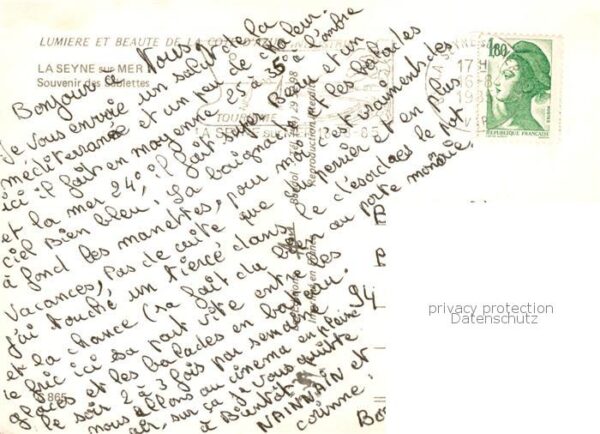 LUMIERE ET BEAUTE DE LA COTE D'AZUR
LA SEYNE sur MER
Souvenir des Sablettes
1,60
REPUBLIQUE FRANCAISE
17H
16-8
LA SEYNE sur MER
TOURISME
Reproduction
Bonjour à Tous.
Je vous envoie un salut de la
méditerranée et un peu de chaleur.
ici il fait en moyenne 25 à 35° à l'ombre
et la mer 24°, il fait super Beau et un
ciel Bien bleu. La baignade et les balades
à fond les manettes, pour moi c'est vraiment des
vacances, pas de cuite que du perrier et en plus
J'ai touché un tiercé dans le désordre le 14
et la chance (sa fait du bien au porte monnaie.
le fric ici sa part vite entre les
glaces et les balades en bateau.
le soir 2 à 3 fois par semaine
nous allons au cinéma en plein
air, sur ce je vous quitte
à Bientôt
NAINNAIN et
corinne.
94
865
privacy protection
Datenschutz